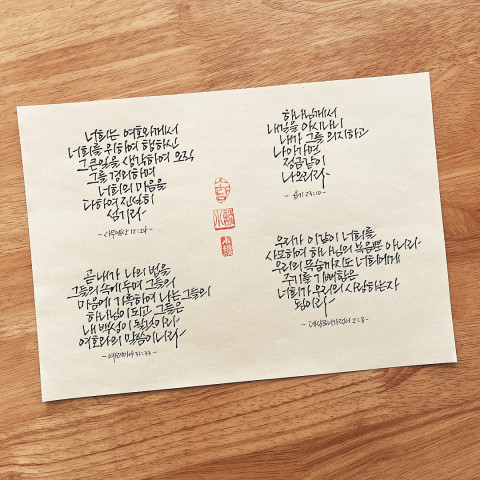 너희는 여호와께서
너희를 위하여 행하신
그 큰 일을 생각하여 오직
그를 경외하며
너희의 마음을
다하여 진실히
섬기라
- 사무엘상 12:24 -
하나님께서
내 길을 아시나니
내가 그를 의지하고
나아가면
정금같이
나오리라
- 욥기 23:10 -
곧 내가 나의 법을
그들의 속에 두며 그들의
마음에 기록하여 나는 그들의
하나님이 되고 그들은
내 백성이 될 것이라
여호와의 말씀이니라
- 예레미야 31:33 -
우리가 이같이 너희를
사모하여 하나님의 복음뿐 아니라
우리의 목숨까지도 너희에게
주기를 기뻐함은
너희가 우리의 사랑하는 자
됨이라
- 데살로니가전서 2:8 -